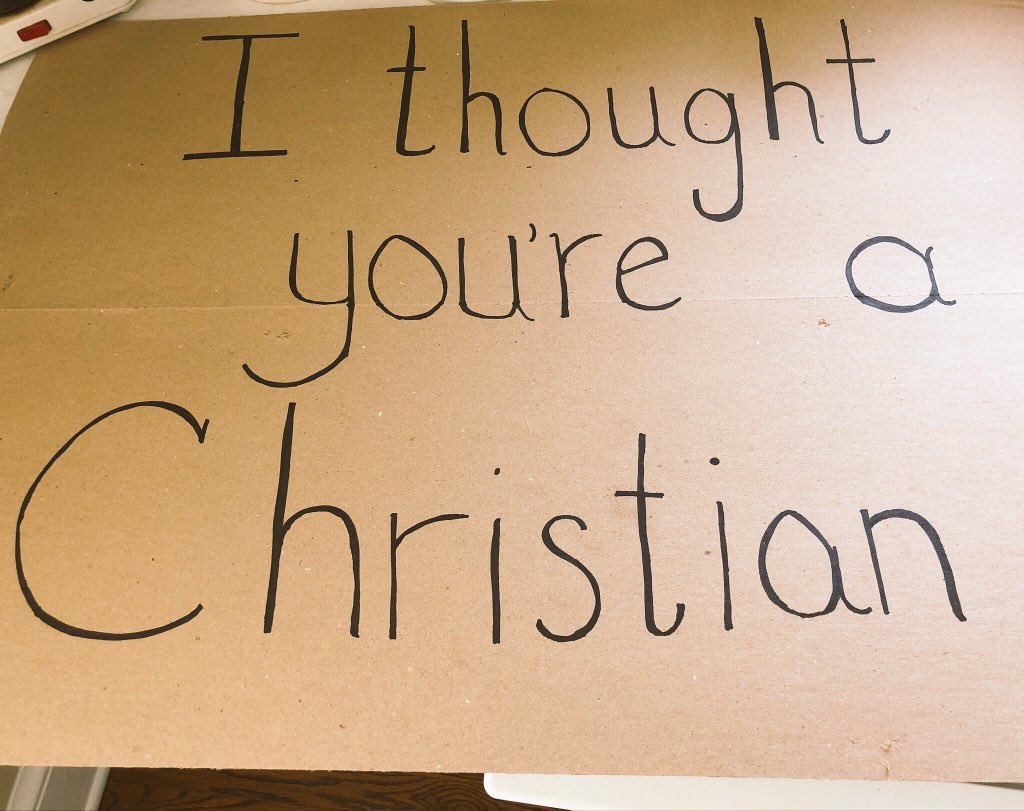 I thought
you're a
Christian